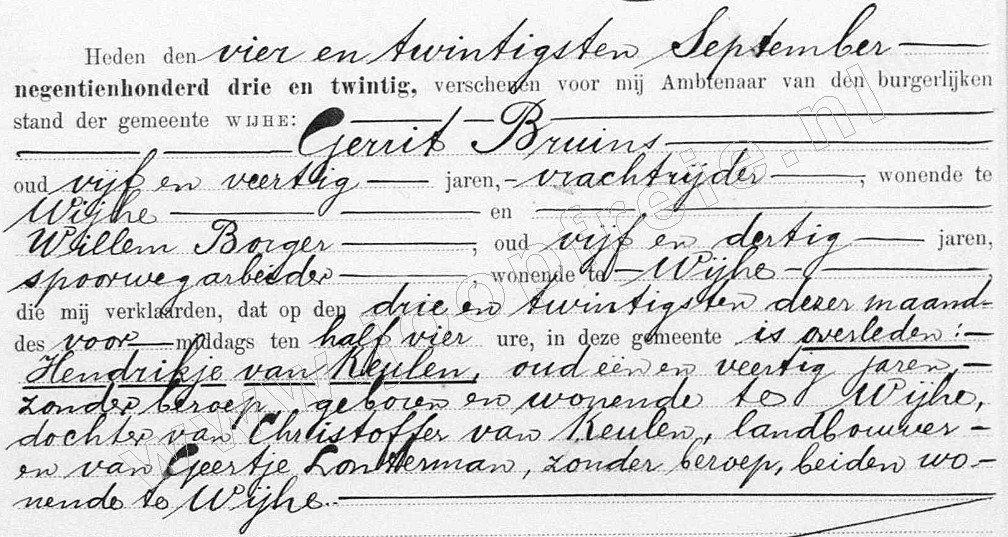 Heden den vier en twintigsten September
negentienhonderd drie en twintig, verschenen voor mij Ambtenaar van den burgerlijken
stand der gemeente WIJHE:
Gerrit Bruins
oud vijf en veertig jaren, vrachtrijder, wonende te
Wijhe en
Willem Borger, oud vijf en dertig jaren,
spoorwegarbeider, wonende te Wijhe,
die mij verklaarden, dat op den drie en twintigsten dezer maand
des voor middags ten half vier ure, in deze gemeente is overleden:
Hendrikje van Keulen, oud één en veertig jaren,
zonder beroep, geboren en wonende te Wijhe,
dochter van Christoffer van Keulen, landbouwer
en van Geertje, zonder beroep, beiden wo-
nende te Wijhe.